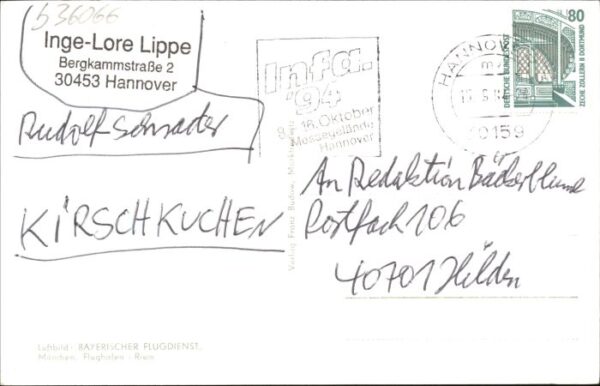 b36066
Inge-Lore Lippe
Bergkammstraße 2
30453 Hannover
Rudolf Schrader
KIRSCHKUCHEN
Infa.
'94
16. Oktober
Messegelände
Hannover
HANNOVER
30159
80
DEUTSCHE BUNDESPOST
ZECHE ZOLLERN II DORTMUND
An Redaktion Bäckerblume
Postfach 106
40701 Hilden
Luftbild: BAYERISCHER FLUGDIENST,
München, Flughafen - Riem